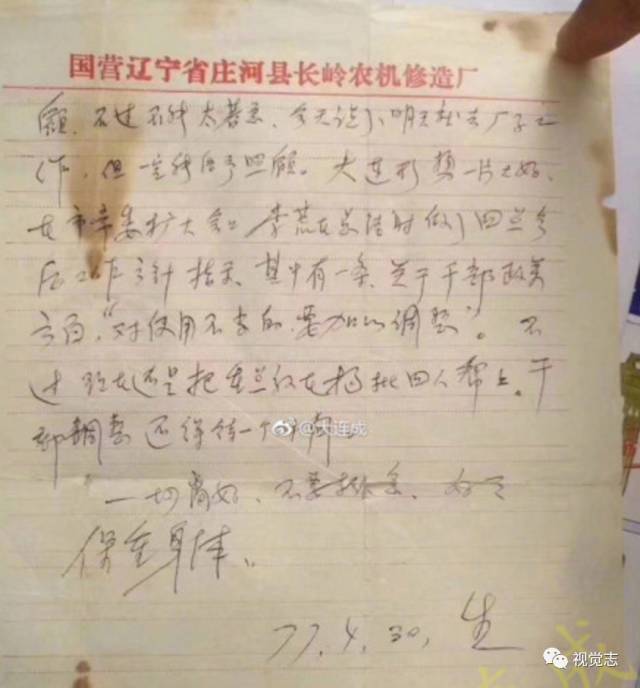 国营辽宁省庄河县长岭农机修造厂
顾，不过不能太着急，今天说了，明天就去厂子工
作，但一定能给予照顾。大连形势一片大好，
在市革委扩大会上 李荒在总结时做了四点今
后工作方针指示，其中有一条，关于干部政策
方面，“对使用不当的，要加以调整”。不
过现在还是把重点放在揭批四人帮上，干
部调整还得待一个时期。
一切尚好，不要挂念，好了
保重身体。
77.4.30, 生
@大连成
视觉志